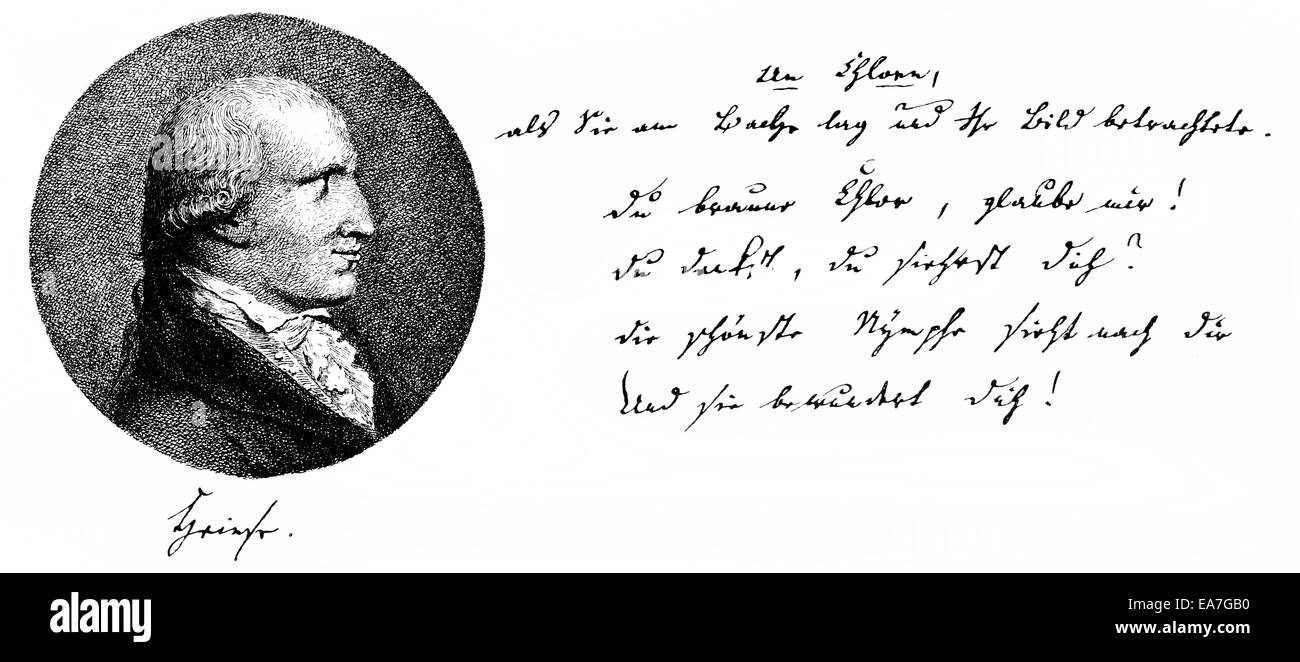 An Chloen,
als Sie am Bache lag und Ihr Bild betrachtete.
Du braune Chloe, glaube mir!
du denkst, du siehest dich?
die schönste Nymphe sieht nach dir
Und sie bewundert dich!
Heinse.
alamy
alamy
Image ID: EA7GB0
www.alamy.com